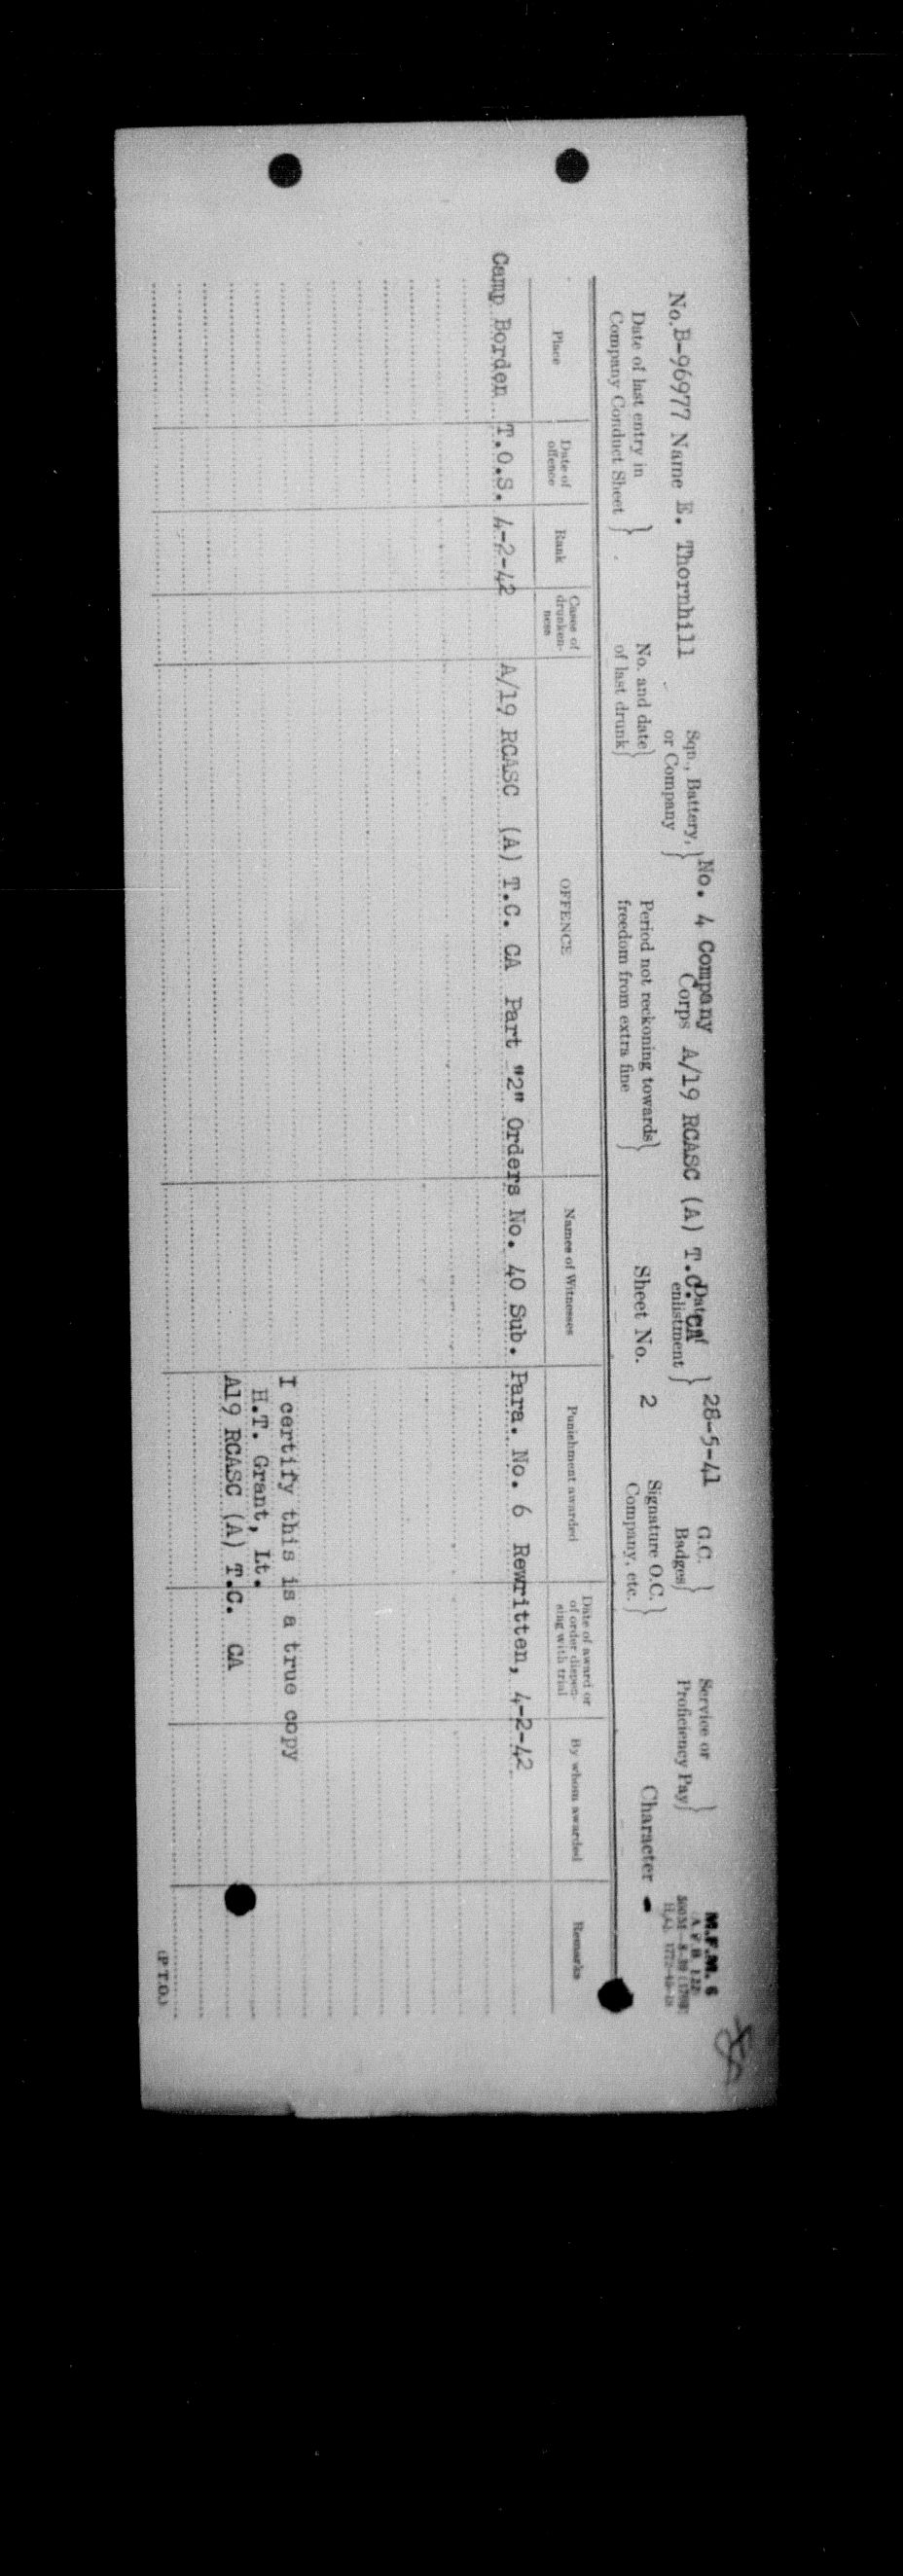 M.F.M. 6
No. B-96977 Name E. Thornhill Sqn., Battery, or Company } No. 4 Company Corps A/19 RCASC (A) T.C. CA Date of enlistment } 28-5-41 G.C. Badges } Service or Proficiency Pay }
Date of last entry in Company Conduct Sheet } No. and date of last drunk } Period not reckoning towards freedom from extra fine } Sheet No. 2 Signature O.C. Company, etc. } Character
Place Date of offence Rank Cases of drunken-ness OFFENCE Names of Witnesses Punishment awarded Date of award or of order dispen-sing with trial By whom awarded Remarks
Camp Borden T.O.S. 4-2-42 A/19 RCASC (A) T.C. CA Part "2" Orders No. 40 Sub. Para. No. 6 Rewritten, 4-2-42
I certify this is a true copy
H.T. Grant, Lt.
A19 RCASC (A) T.C. CA
(P.T.O.)